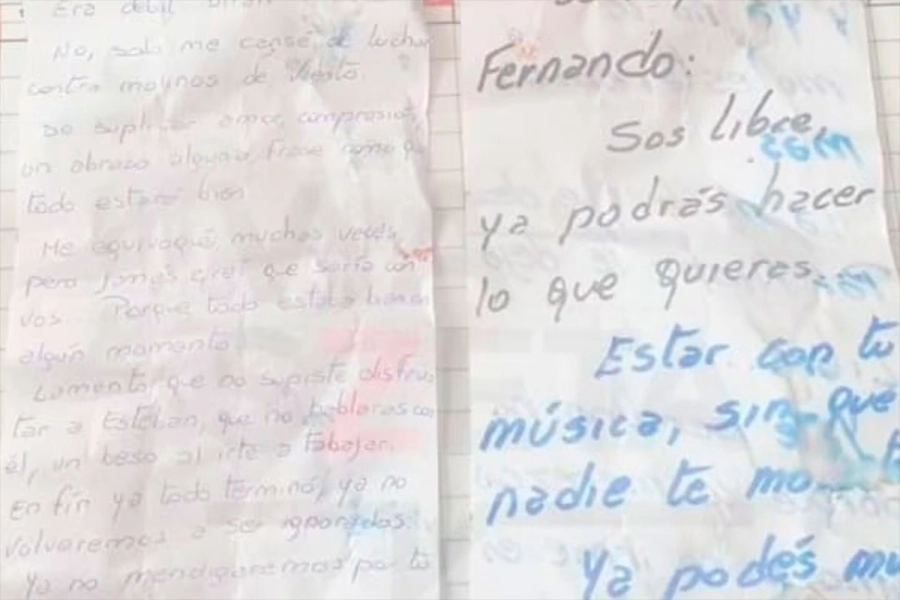 Era debil
No, solo me cansé de luchar
contra molynos de viento.
De suplicar amor, comprosión,
un abrazo alguna frase
todo estará bien
Me equivoqué, muchas veces,
pero jamás creí que sería con
vos. Porque todo estaba bien en
algún momento
Lamento, que no supiste disfru
tar a Esteban, que no hablaras con
él, un beso al irte a trabajar.
En fin ya todo terminó, ya no
volveremos a ser ignorados.
Ya no mendigaremos por tu
Fernando:
Sos libre,
ya podrás hacer
lo que quieras.
Estar con tu
música, sin que
nadie te mo
Ya podés mu